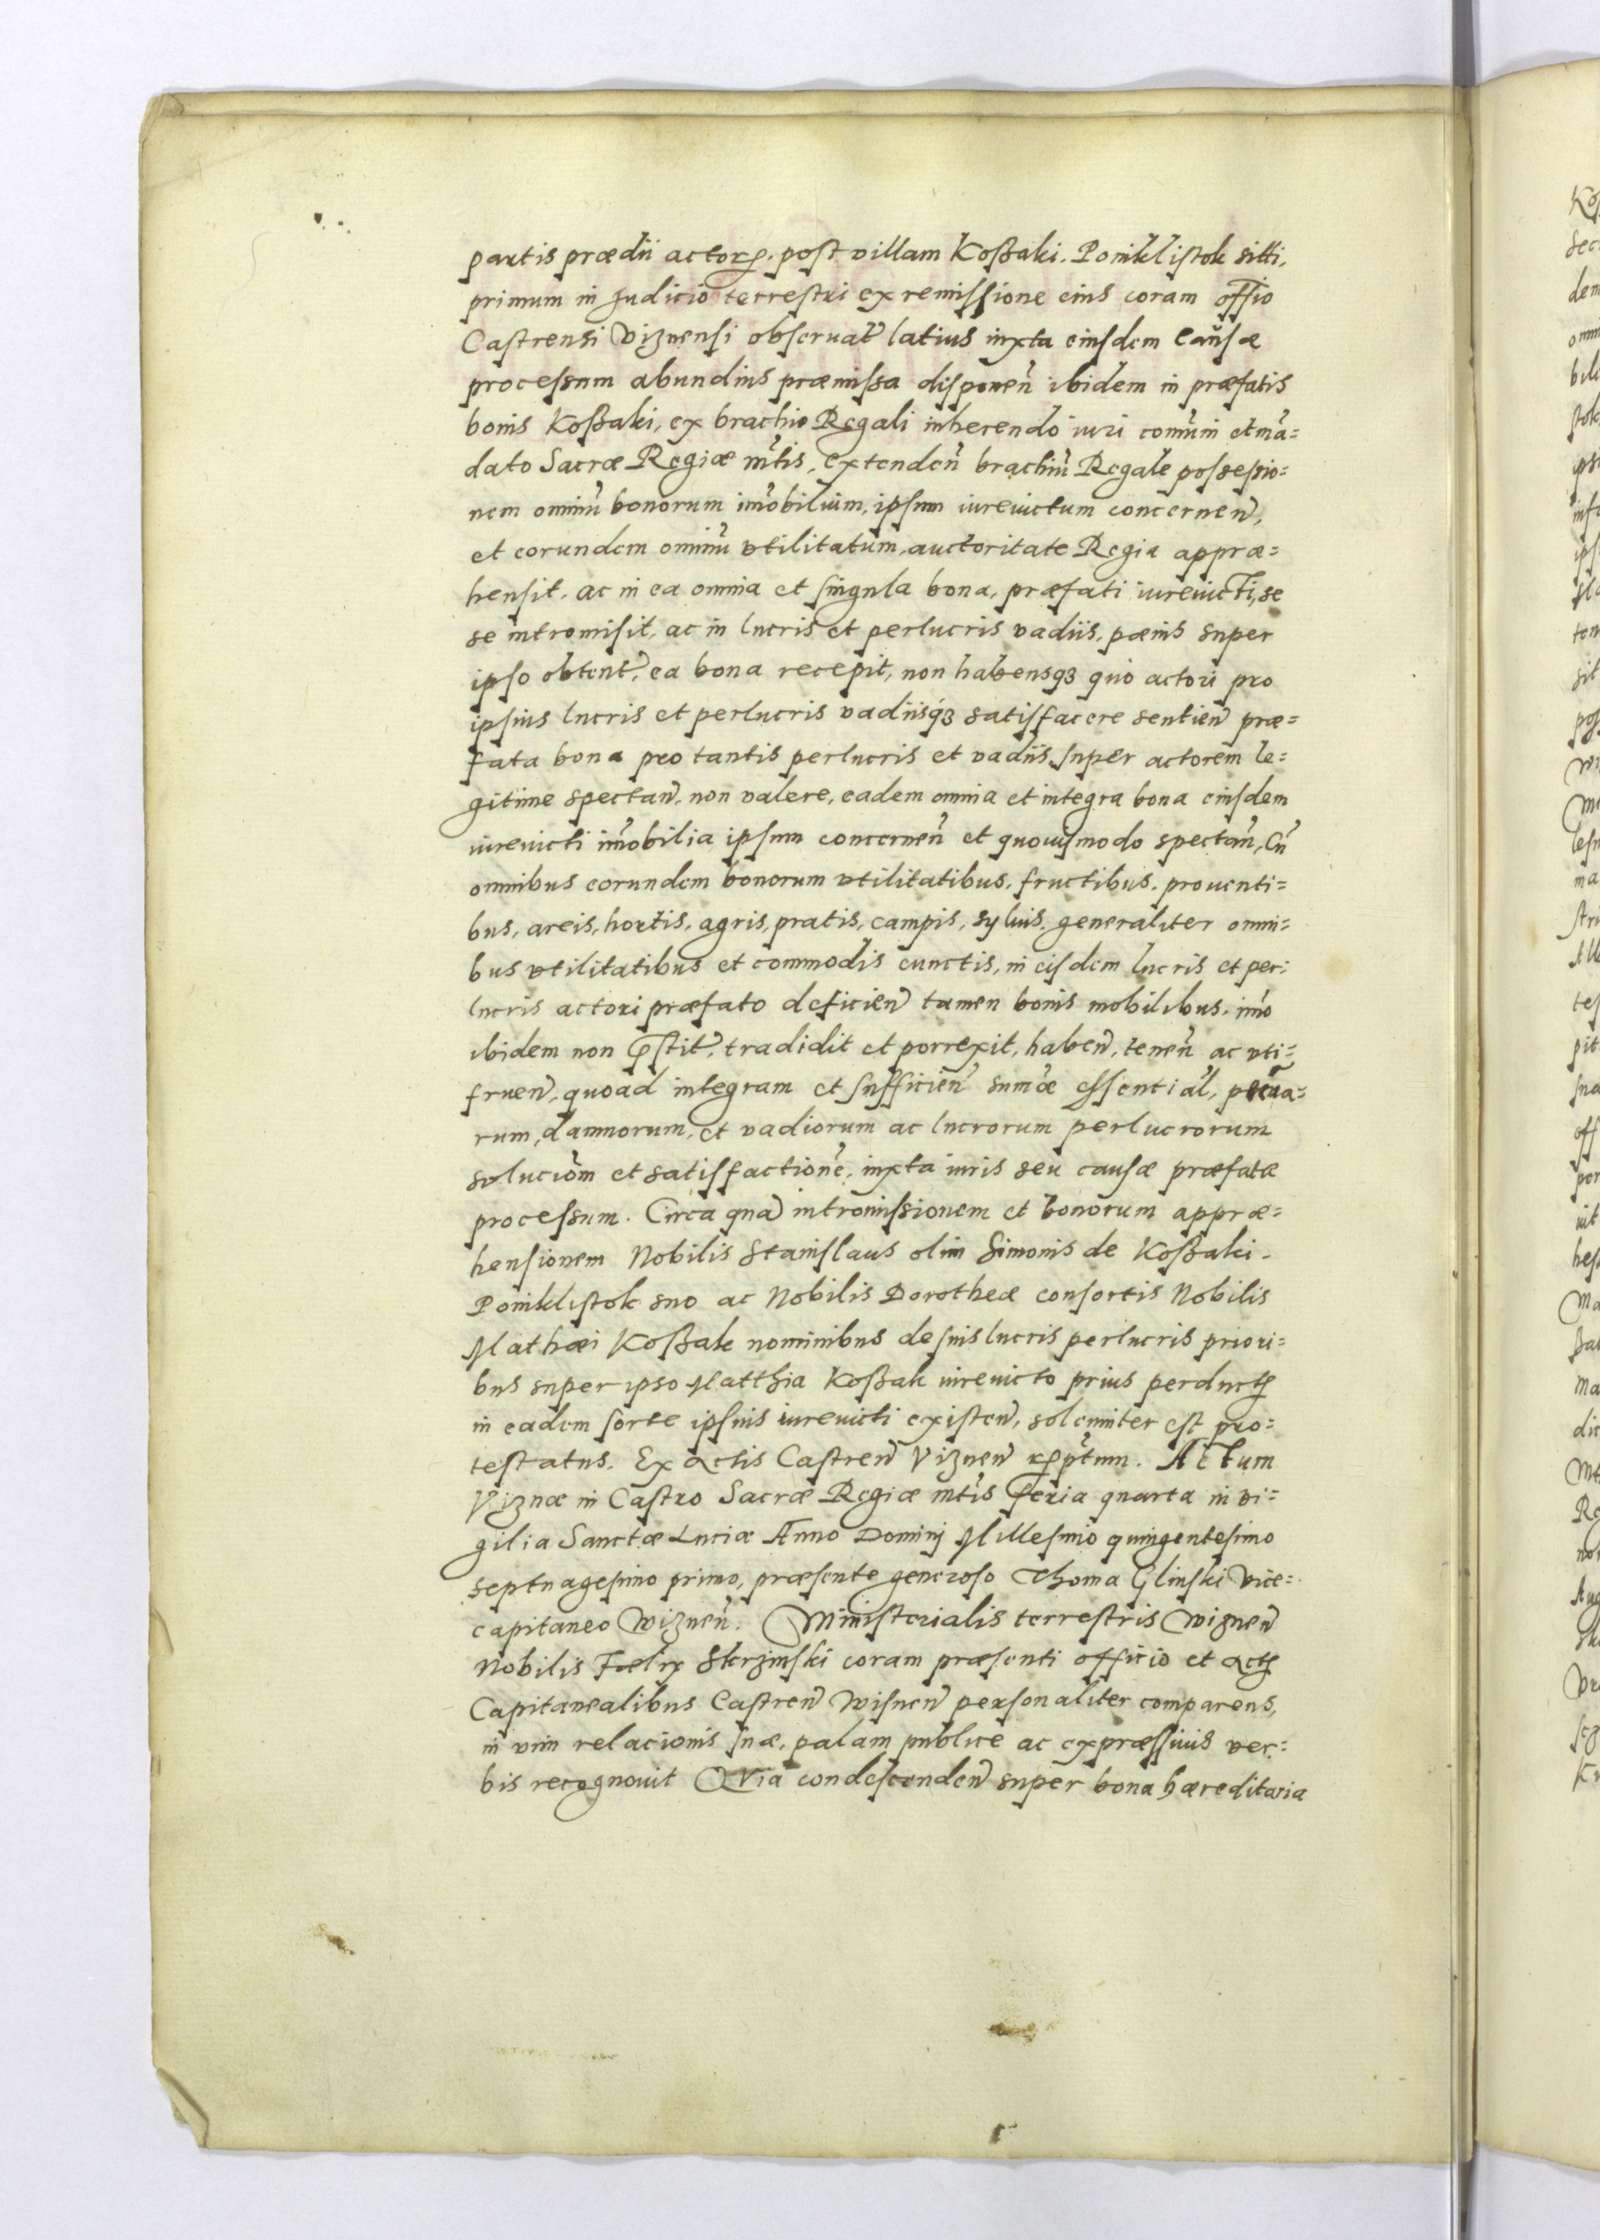 partis prædii actorꝝ. post villam Koßaki. Poniklistok sitti.
primum in Judicio terrestri ex remissione eius coram offio
Castrensi Viznensi obseruat̃ latius iuxta eiusdem causæ
processum abundius præmissa disponeñ ibidem in præfatis
bonis Koßaki, ex brachio Regali inherendo iuri comũni et mã=
dato Sacræ Regiæ mtis, extendeñ brachiũ Regale possessio=
nem omniũ bonorum imobilium, ipsum iureuictum concerneñ,
et eorundem omniũ vtilitatum, auctoritate Regia appræ=
hensit. ac in ea omnia et singula bona, præfati iureuicti, se
se intromisit, ac in lucris et perlucris vadiis, pænis super
ipso obtent̃, ea bona recepit, non habensqꝫ quo actori pro
ipsius lucris et perlucris vadiisqꝫ satisfacere sentieñ præ=
fata bona pro tantis perlucris et vadiis, super actorem le=
gitime spectañ, non valere, eadem omnia et integra bona eiusdem
iureuicti imobilia ipsum concerneñ et quouismodo spectañ, Cũ
omnibus eorundem bonorum vtilitatibus, fructibus, prouenti=
bus, areis, hortis, agris, pratis, campis, syluis, generaliter omni=
bus vtilitatibus et commodis cunctis, in eisdem lucris et per=
lucris actori præfato deficieñ tamen bonis mobilibus, imo
ibidem non p̃stit̃, tradidit et porrexit, habeñ, teneñ ac vti=
frueñ, quoad integram et sufficieñ sumæ essential, pecua=
rum, damnorum, et vadiorum ac lucrorum perlucrorum
soluciom et satisfactione, iuxta iuris seu causæ præfatæ
processum. Circa quã intromissionem et bonorum appræ=
hensionem Nobilis Stanislaus olim Simonis de Koßaki.
Poniklistok suo ac Nobilis Dorotheæ consortis Nobilis
Mathæi Koßak nominibus de suis lucris perlucris priori=
bus super ipso Matthia Koßak iureuicto prius perductꝭ
in eadem sorte ipsius iureuicti existeñ, solemniter est pro=
testatus. Ex Actis Castreñ Vizneñ rptum. Actum
Viznæ in Castro Sacræ Regiæ mtis Feria quarta in vi=
gilia Sanctæ Luciæ Anno Dominj Millesimo quingentesimo
septuagesimo primo, præsente generoso Thoma Glinski vice=
capitaneo Wizneñ. Ministerialis terrestris Wizneñ
Nobilis Fœlix Skrzinski coram præsenti officio et Actꝭ
Capitanealibus Castreñ Wisneñ personaliter comparens,
in vim relacionis suæ, palam publice ac expræssiuis ver=
bis recognouit QVia condescendeñ super bona hæreditaria